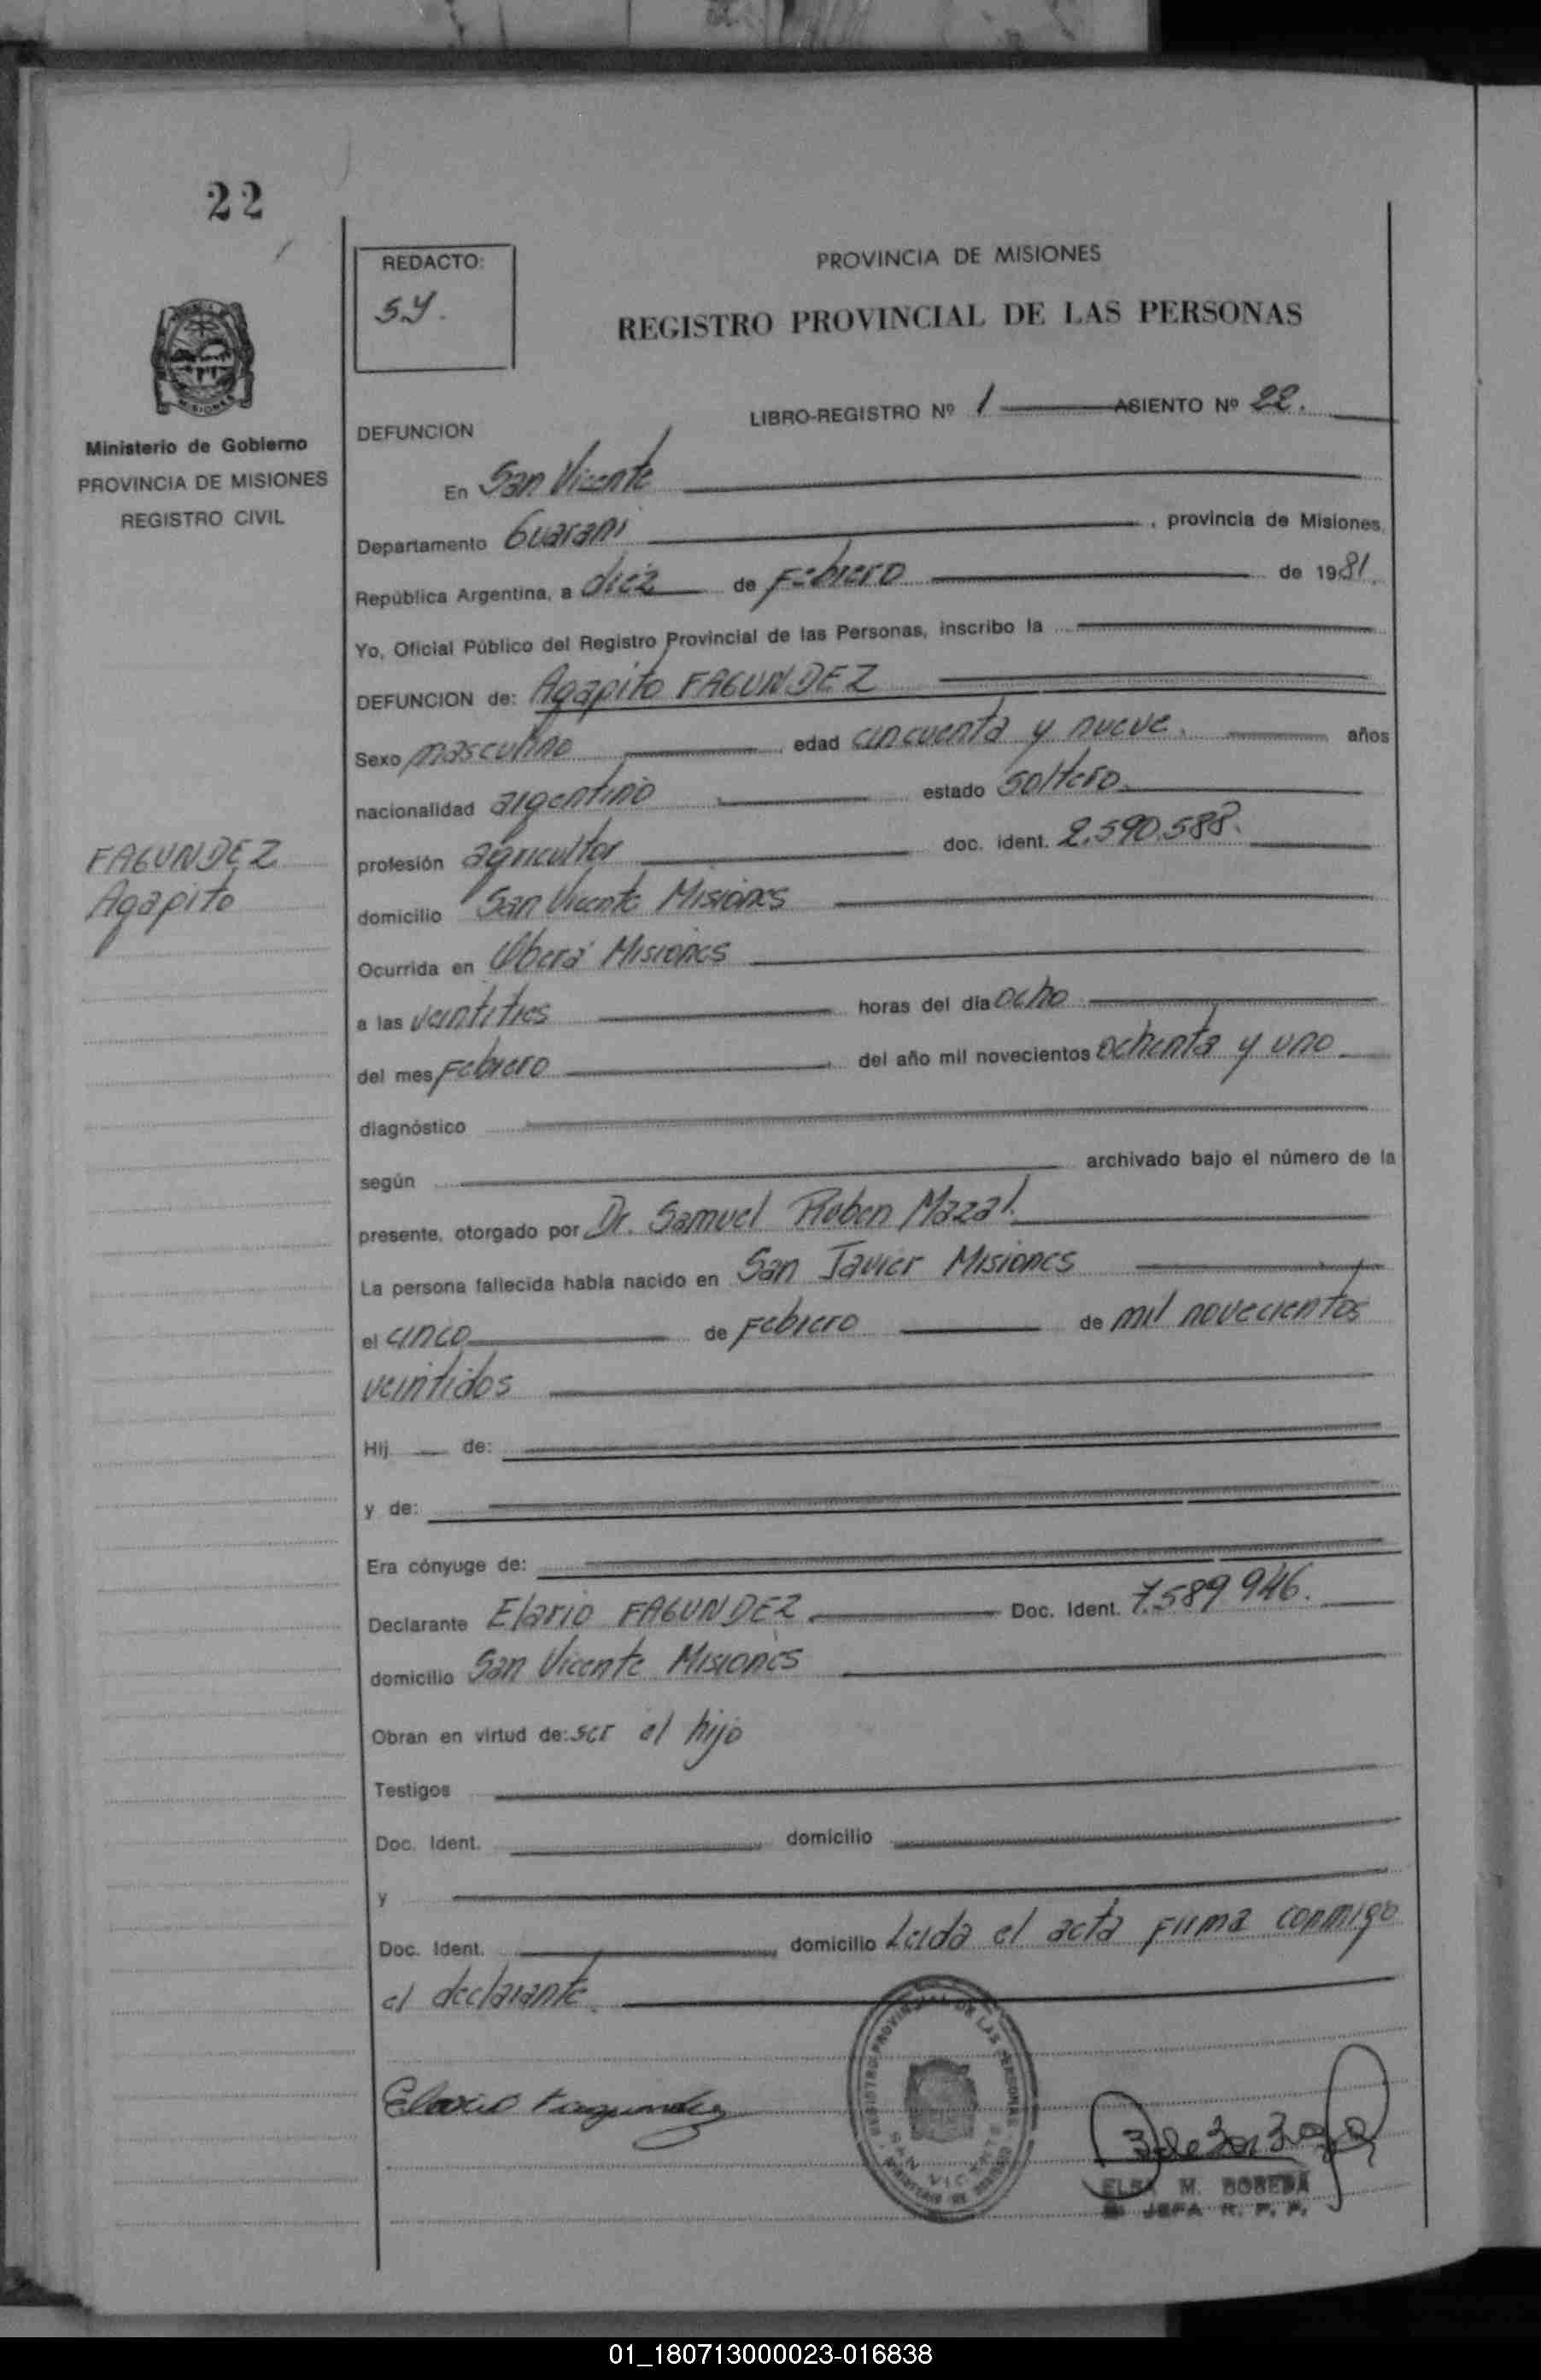 22
REDACTO:
S.Y.
PROVINCIA DE MISIONES
REGISTRO PROVINCIAL DE LAS PERSONAS
MISIONES
Ministerio de Gobierno
PROVINCIA DE MISIONES
REGISTRO CIVIL
LIBRO-REGISTRO Nº 1 ASIENTO Nº 22.
DEFUNCION
En San Vicente
Departamento Guaraní , provincia de Misiones,
República Argentina, a diez de Febrero de 1981.
Yo, Oficial Público del Registro Provincial de las Personas, inscribo la
DEFUNCION de: Agapito FAGUNDEZ
Sexo masculino edad cincuenta y nueve. años
nacionalidad argentino estado soltero.
FAGUNDEZ
Agapito
profesión agricultor doc. ident. 2.590.588.
domicilio San Vicente Misiones
Ocurrida en Oberá Misiones
a las veintitres horas del día ocho
del mes Febrero del año mil novecientos ochenta y uno
diagnóstico
según archivado bajo el número de la
presente, otorgado por Dr. Samuel Ruben Mazal.
La persona fallecida había nacido en San Javier Misiones
el cinco de Febrero de mil novecientos
veintidos
Hij de:
y de:
Era cónyuge de:
Declarante Elario FAGUNDEZ Doc. Ident. 7.589.946.
domicilio San Vicente Misiones
Obran en virtud de: ser el hijo
Testigos
Doc. Ident. domicilio
y
Doc. Ident. domicilio Leida el acta Firma conmigo
el declarante.
REGISTRO PROVINCIAL DE LAS PERSONAS
SAN VICENTE
Elario Fagundez
ELSA M. BOBEDA
JEFA R. P. P.
01_180713000023-016838